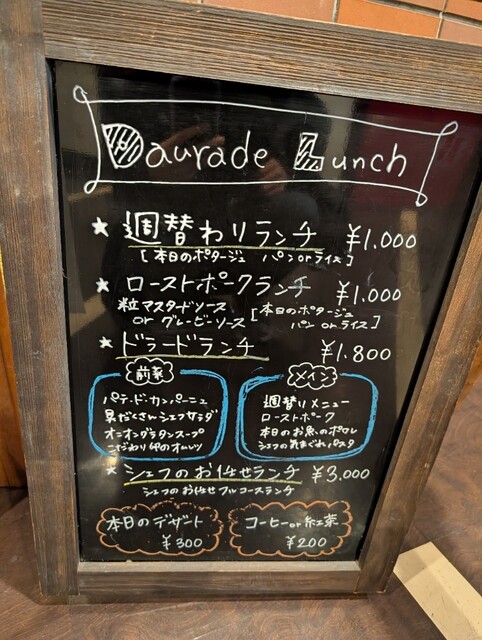 Daurade Lunch
★ 週替わりランチ ¥1.000
[本日のポタージュ パンorライス]
★ ローストポークランチ ¥1.000
粒マスタードソース
or グレービーソース
[本日のポタージュ
パン orライス]
★ ドラードランチ ¥1.800
前菜
パテ・ド・カンパーニュ
具だくさんシェフサラダ
オニオングラタンスープ
こだわり卵のオムレツ
メイン
週替りメニュー
ローストポーク
本日のお魚のポワレ
シェフの気まぐれパスタ
★ シェフのお任せランチ ¥3.000
シェフのお任せフルコースランチ
本日のデザート
¥300
コーヒーor紅茶
¥200